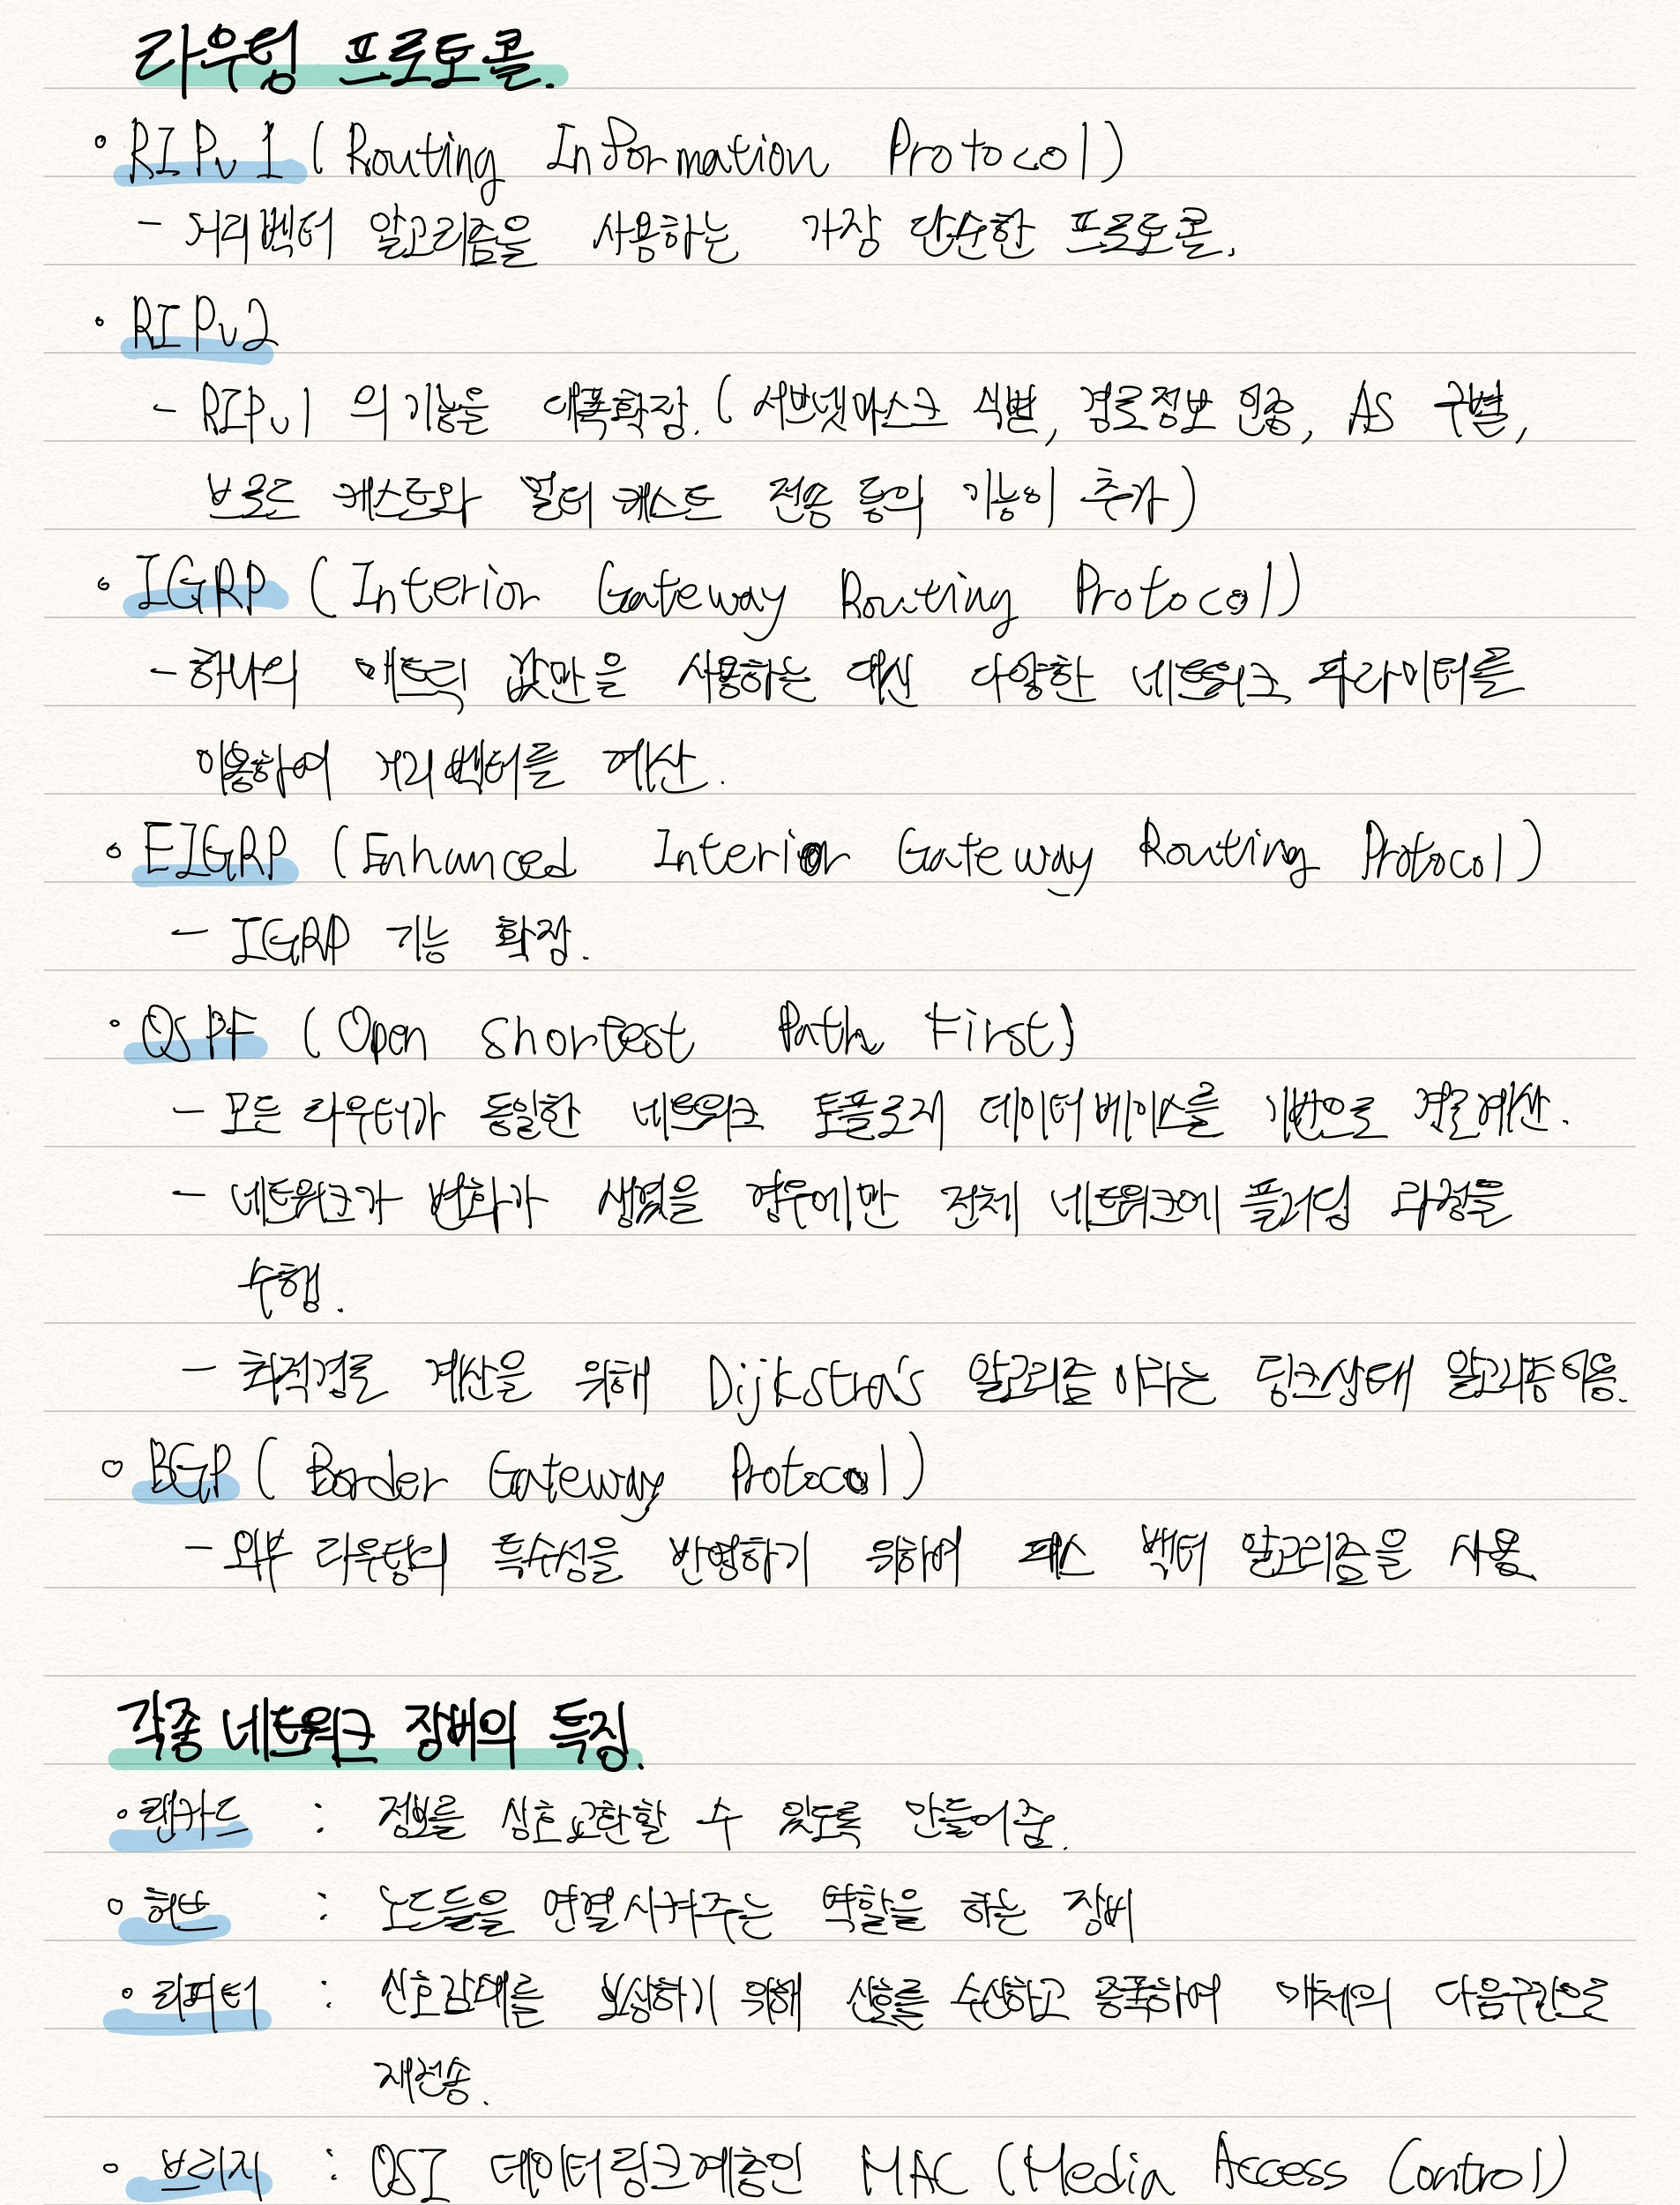 라우팅 프로토콜.
• RIPv1 ( Routing Information Protocol )
- 거리벡터 알고리즘을 사용하는 가장 단순한 프로토콜.
• RIPv2
- RIPv1 의 기능을 대폭확장. ( 서브넷마스크 식별, 경로정보 인증, AS 구별,
브로드 케스트와 멀티 케스트 전송 등의 기능이 추가 )
• IGRP ( Interior Gateway Routing Protocol )
- 하나의 매트릭 값만을 사용하는 대신 다양한 네트워크 파라미터를
이용하여 거리벡터를 계산.
• EIGRP ( Enhanced Interior Gateway Routing Protocol )
- IGRP 기능 확장.
• OSPF ( Open Shortest Path First )
- 모든 라우터가 동일한 네트워크 토폴로지 데이터베이스를 기반으로 경로계산.
- 네트워크가 변화가 생겼을 경우에만 전체 네트워크에 플러딩 과정을
수행.
- 최적경로 계산을 위해 Dijkstra's 알고리즘 이라는 링크상태 알고리즘이용.
• BGP ( Border Gateway Protocol )
- 외부 라우팅의 특수성을 반영하기 위하여 패스 벡터 알고리즘을 사용.
각종 네트워크 장비의 특징.
• 랜카드 : 정보를 상호교환할 수 있도록 만들어줌.
• 허브 : 노드들을 연결시켜주는 역할을 하는 장비
• 리피터 : 신호감쇄를 보상하기 위해 신호를 수신하고 증폭하여 매체의 다음구간으로
재전송.
• 브리지 : OSI 데이터링크계층인 MAC ( Media Access Control )